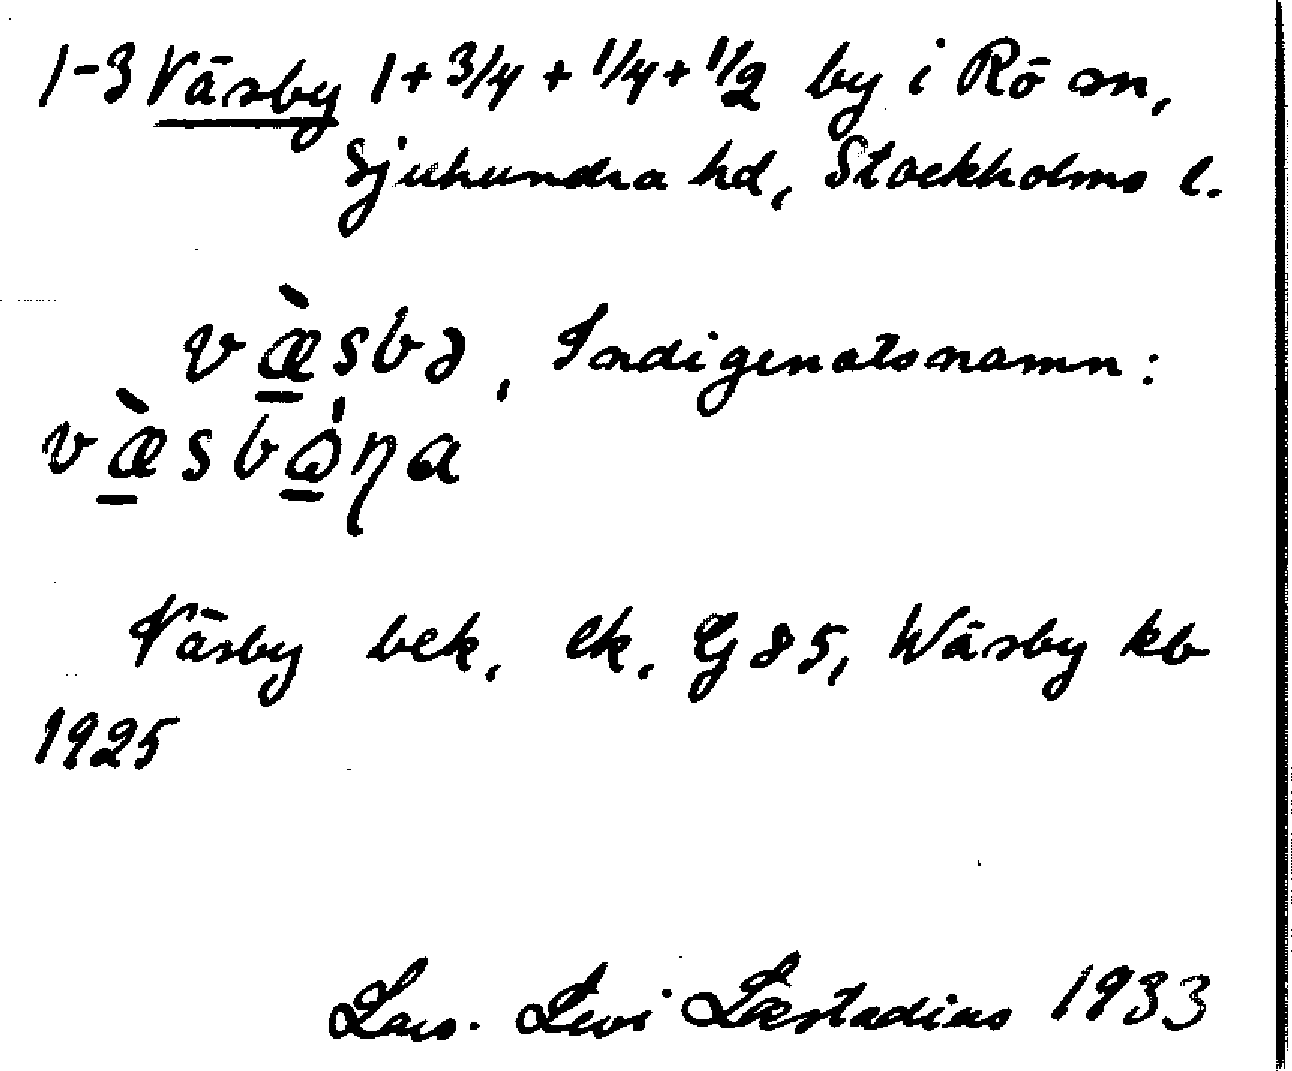 1-3 Väsby 1 + 3/4 + 1/4 + 1/2 by i Rö sn,
Sjuhundra hd, Stockholms l.
væ̱̀sbə, Indigenatsnamn:
væ̱̀sbo̱̍ŋa
Väsby bek. ek. G 85, Wäsby kb
1925
Lars. Levi Læstadius 1933